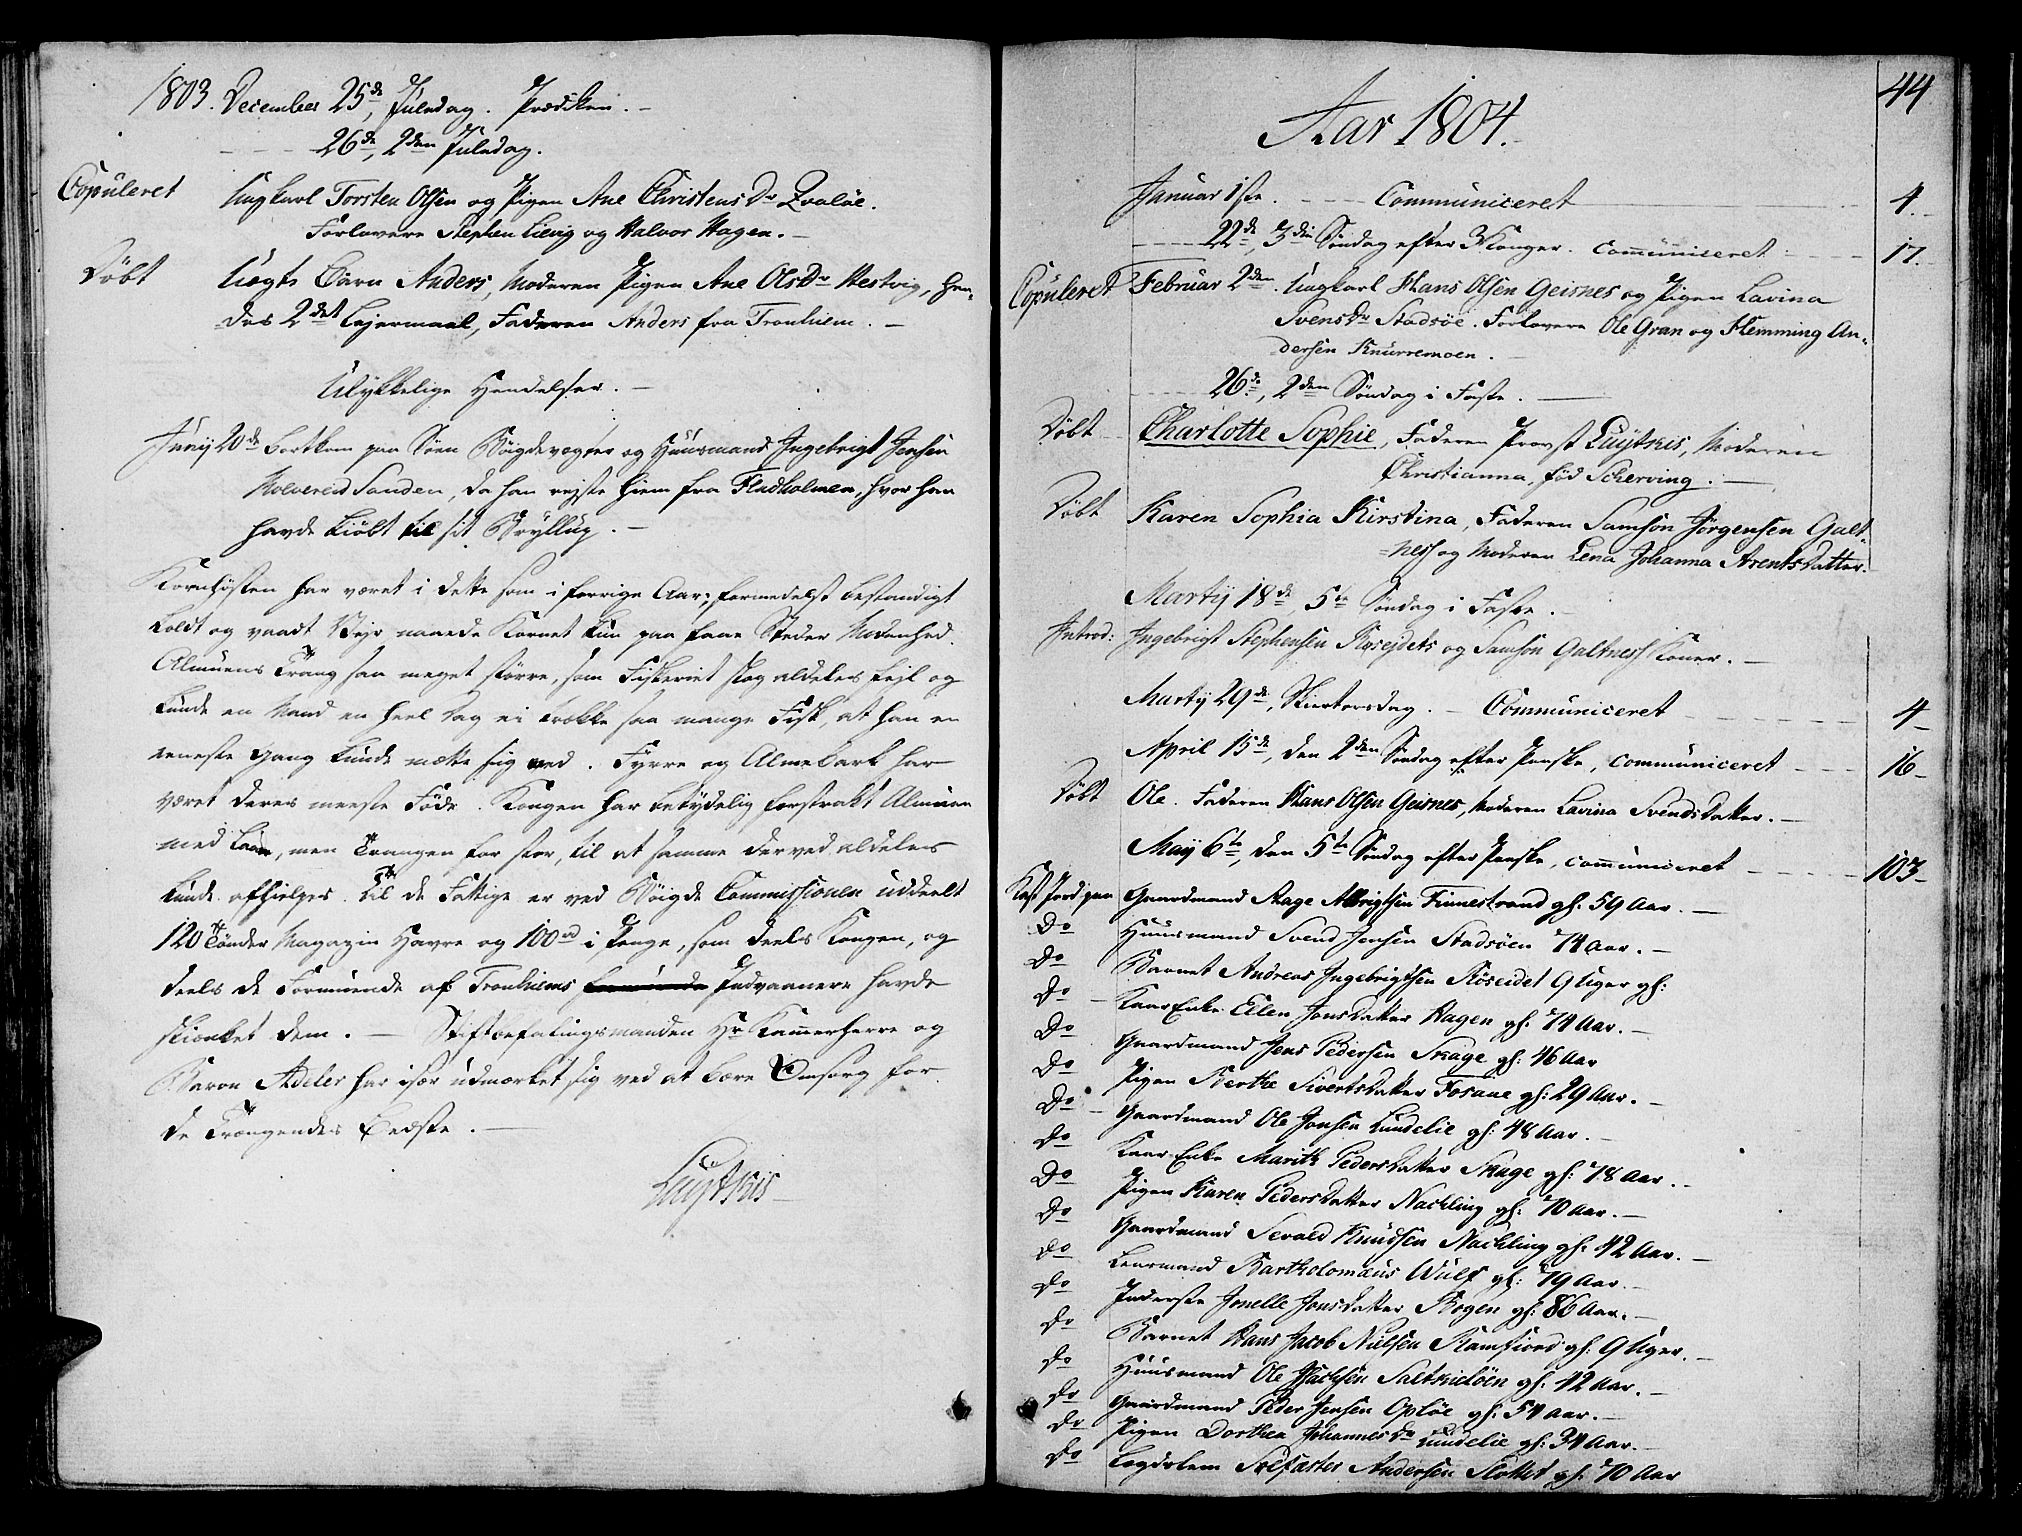 1803. December 25de, Juledag. Prædiken. —
26de, 2den Juledag.
Copuleret Ungkarl Torsten Olsen og Pigen Ane ChristensDr Qvaløe.
Forlovere Stephen Lievig og Halvor Hagen. —
Døbt Uægte Barn Anders, Moderen Pigen Ane OlsDr Hestvig, hen-
des 2det Lejermaal, Faderen Anders fra Tronhiem. —
Ulykkelige Hendelser. —
Junij 20de bortkom paa Søen Bøigdevægter og Huusmand Ingebrigt Jensen
Kolvereid Sanden, da han rejste hiem fra Fladholmen, hvor han
havde kiøbt til sit Bryllup. —
Kornhøsten har været i dette som i forrige Aar; formedelst bestandigt
koldt og vaadt Vejr naaede Kornet kun paa faae Steder Modenhed.
Almuens Trang saa meget større, som Fiskeriet slog aldeles fejl og
kunde en Mand en heel Dag ei trække saa mange Fisk, at han en
eeneste Gang kunde mætte sig ved. Fyrre og Almebark har
været deres meeste Føde. Kongen har betydelig forstrakt Almuen
med Laan, men Trangen for stor, til at samme derved aldeles
kunde afhielpes. Til de Fattige er ved Bøigde Commissionen uddeelt
120 Tønder Magazin Havre og 100 rd i Penge, som deels Kongen, og
deels de Formuende af Tronhiems Indvaanere havde
skienket dem. — Stiftbefalingsmanden Hr Kammerherre og
Baron Adeler har især udmærket sig ved at bære Omsorg for
de Trængendes Bedste. —
Luytkis
44
Aar 1804.
Januar 1ste. Communiceret 4.
22de, 3die Søndag efter 3 Konger. communiceret 17.
Copuleret Februar 2den. Ungkarl Hans Olsen Geisnes og Pigen Lavina
SvensDr Stadsøe. Forlovere Ole Gran og Flemming An-
dersen Knurremoen. —
26de, 2den Søndag i Faste. —
Døbt Charlotte Sophie, Faderen Provst Luytkis, Moderen
Christianna, fød Scherving. —
Døbt Karen Sophia Kirstina, Faderen Samson Jørgensen Galt-
ness og Moderen Lena Johanna ArentsDatter.
Martij 18de, 5te Søndag i Faste. —
Introd: Ingebrigt Stephensen Røsejdets og Samson Galtness Koner. —
Martij 29de, Skiertorsdag. — Communiceret 4 —
April 15de, den 2den Søndag efter Paaske, communiceret 16 —
Døbt Ole. Faderen Hans Olsen Geisnes, Moderen Lavina SvendsDatter. —
Maij 6te, den 5te Søndag efter Paaske, communiceret 103 —
Kast Jord paa Gaardmand Aage Albrigtsen Finnestrand gl: 59 Aar. —
Do Huusmand Svend Jensen Stadsøen 74 Aar. —
Do Barnet Andreas Ingebrigtsen Røseidet 9 Uger gl:
Do Kaar Enke Elen JonsDatter Hagen gl: 74 Aar. —
Do Gaardmand Jens Pedersen Skage gl: 46 Aar
Do Pigen Berthe SivertsDatter Fosnæe gl: 29 Aar. —
Do Gaardmand Ole Jonsen Lundelie gl: 48 Aar. —
Do Kaar Enke Marith PedersDatter Skage gl: 78 Aar. —
Do Pigen Karen PedersDatter Nachling gl: 70 Aar. —
Do Gaardmand Sevald Knudsen Nachling gl: 42 Aar. —
Do Lensmand Bartholomæus Wulf gl: 79 Aar. —
Do Inderste Jonelle JonsDatter Skogen gl: 86 Aar. —
Do Barnet Hans Jacob Nielsen Ramfiord gl: 9 Uger. —
Do Huusmand Ole Isachsen Saltkieløen gl: 42 Aar. —
Do Gaardmand Peder Jensen Opløe gl: 54 Aar. —
Do Pigen Dorthea JohannesDr Lundelie gl: 34 Aar. —
Do Legdelem Andersen Slottet gl: 70 Aar